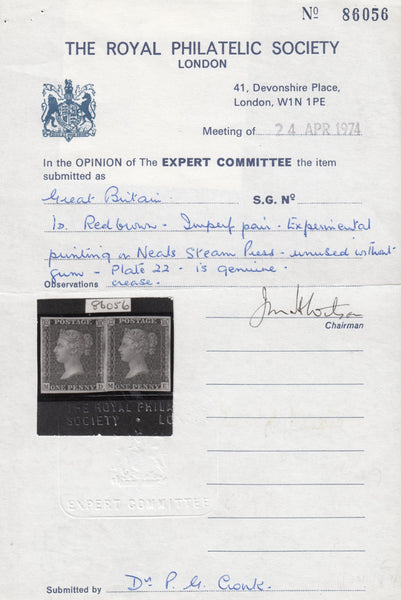 Nº 86056
THE ROYAL PHILATELIC SOCIETY
LONDON
41, Devonshire Place,
London, W1N 1PE
Meeting of 24 APR 1974
In the OPINION of The EXPERT COMMITTEE the item
submitted as
Great Britain. S.G. Nº
1d. Redbrown - Imperf pair - Experimental
printing on Neale Steam Press - unused without
gum - Plate 22 - is genuine.
Observations crease.
Chairman
86056
POSTAGE POSTAGE
M ONE PENNY D M ONE PENNY E
THE ROYAL PHILA
SOCIETY • LO
EXPERT COMMITTEE
Submitted by Dr P. G. Cronk.